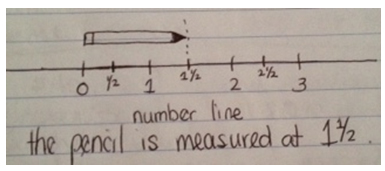 0 ½ 1 1½ 2 2½ 3
number line
the pencil is measured at 1½.